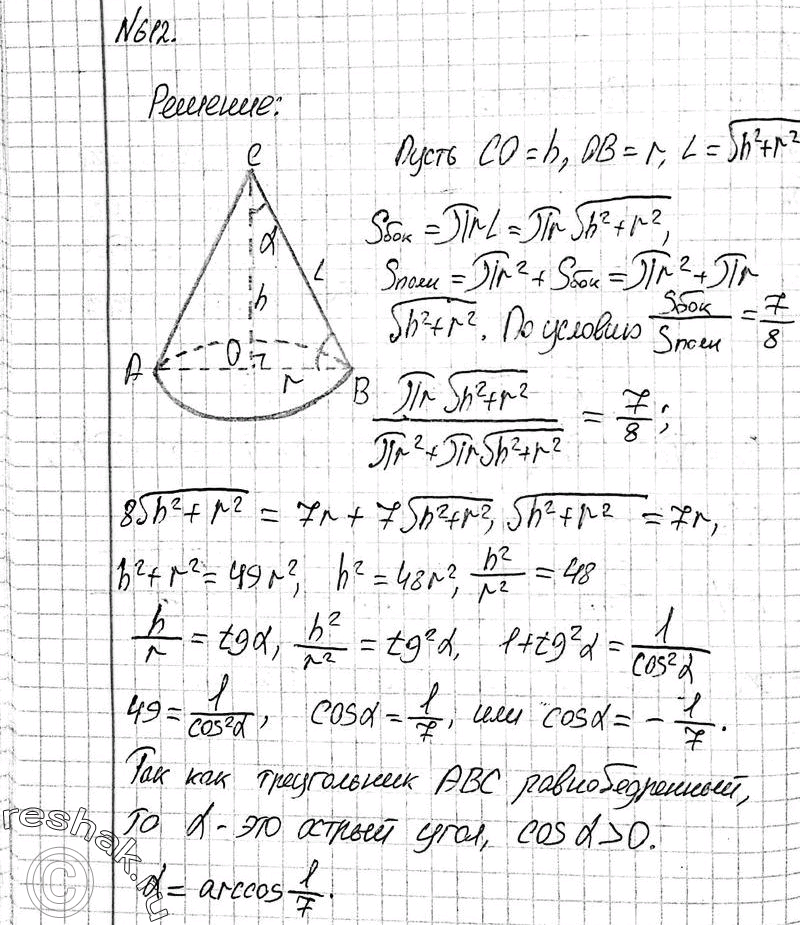 №612.
Решение:
C
α
L
h
A
O
r
B
Пусть CO = h, OB = r, L = √(h²+r²)
Sбок = πrL = πr √(h²+r²),
Sполн = πr² + Sбок = πr² + πr
√(h²+r²). По условию Sбок/Sполн = 7/8
πr √(h²+r²) / (πr² + πr√(h²+r²)) = 7/8;
8√(h²+r²) = 7r + 7√(h²+r²), √(h²+r²) = 7r,
h²+r² = 49r², h² = 48r², h²/r² = 48
h/r = tgα, h²/r² = tg²α, 1+tg²α = 1/cos²α
49 = 1/cos²α, cosα = 1/7, или cosα = -1/7.
Так как треугольник ABC равнобедренный,
то α - это острый угол, cosα>0.
α = arccos 1/7.
reshak.ru
©